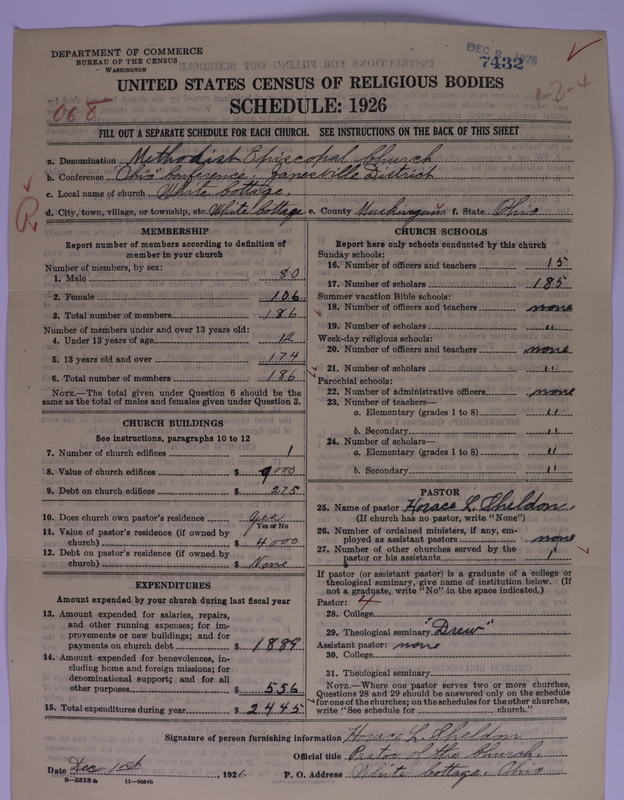 DEPARTMENT OF COMMERCE
BUREAU OF THE CENSUS
WASHINGTON
DEC 8 1926
7432
1-2-4
UNITED STATES CENSUS OF RELIGIOUS BODIES
068
SCHEDULE: 1926
FILL OUT A SEPARATE SCHEDULE FOR EACH CHURCH. SEE INSTRUCTIONS ON THE BACK OF THIS SHEET
a. Denomination Methodist Episcopal Church
b. Conference "Ohio" Conference; Zanesville District
c. Local name of church White Cottage.
d. City, town, village, or township, etc. White Cottage e. County Muskingum f. State Ohio
R
MEMBERSHIP
Report number of members according to definition of
member in your church
Number of members, by sex:
1. Male 80
2. Female 106
3. Total number of members 186
Number of members under and over 13 years old:
4. Under 13 years of age 12
5. 13 years old and over 174
6. Total number of members 186
NOTE.—The total given under Question 6 should be
same as the total of males and females given under Question 3.
CHURCH BUILDINGS
See instructions, paragraphs 10 to 12
7. Number of church edifices 1
8. Value of church edifices $ 9000
9. Debt on church edifices $ 275
10. Does church own pastor's residence Yes
Yes or No
11. Value of pastor's residence (if owned by
church) $ 4000
12. Debt on pastor's residence (if owned by
church) $ None
EXPENDITURES
Amount expended by your church during last fiscal year
13. Amount expended for salaries, repairs,
and other running expenses; for im-
provements or new buildings; and for
payments on church debt $ 1889
14. Amount expended for benevolences, in-
cluding home and foreign missions; for
denominational support; and for all
other purposes $ 556
15. Total expenditures during year $ 2445
CHURCH SCHOOLS
Report here only schools conducted by this church
Sunday schools:
16. Number of officers and teachers 15
17. Number of scholars 185
Summer vacation Bible schools:
18. Number of officers and teachers none
19. Number of scholars "
Week-day religious schools:
20. Number of officers and teachers none
21. Number of scholars "
Parochial schools:
22. Number of administrative officers none
23. Number of teachers—
a. Elementary (grades 1 to 8) "
b. Secondary "
24. Number of scholars—
a. Elementary (grades 1 to 8) "
b. Secondary "
PASTOR
25. Name of pastor Horace L. Sheldon.
(If church has no pastor, write "None")
26. Number of ordained ministers, if any, em-
ployed as assistant pastors none
27. Number of other churches served by the
pastor or his assistants 1
If pastor (or assistant pastor) is a graduate of a college or
theological seminary, give name of institution below. (If
not a graduate, write "No" in the space indicated.)
Pastor: 4
28. College
29. Theological seminary "Drew"
Assistant pastor: none
30. College
31. Theological seminary
NOTE.—Where one pastor serves two or more churches,
Questions 28 and 29 should be answered only on the schedule
for one of the churches; on the schedules for the other churches,
write "See schedule for church."
Signature of person furnishing information Horace L. Sheldon
Official title Pastor of the Church.
Date Dec 1st, 1926 P. O. Address White Cottage, Ohio
8—5518a 11—9504b